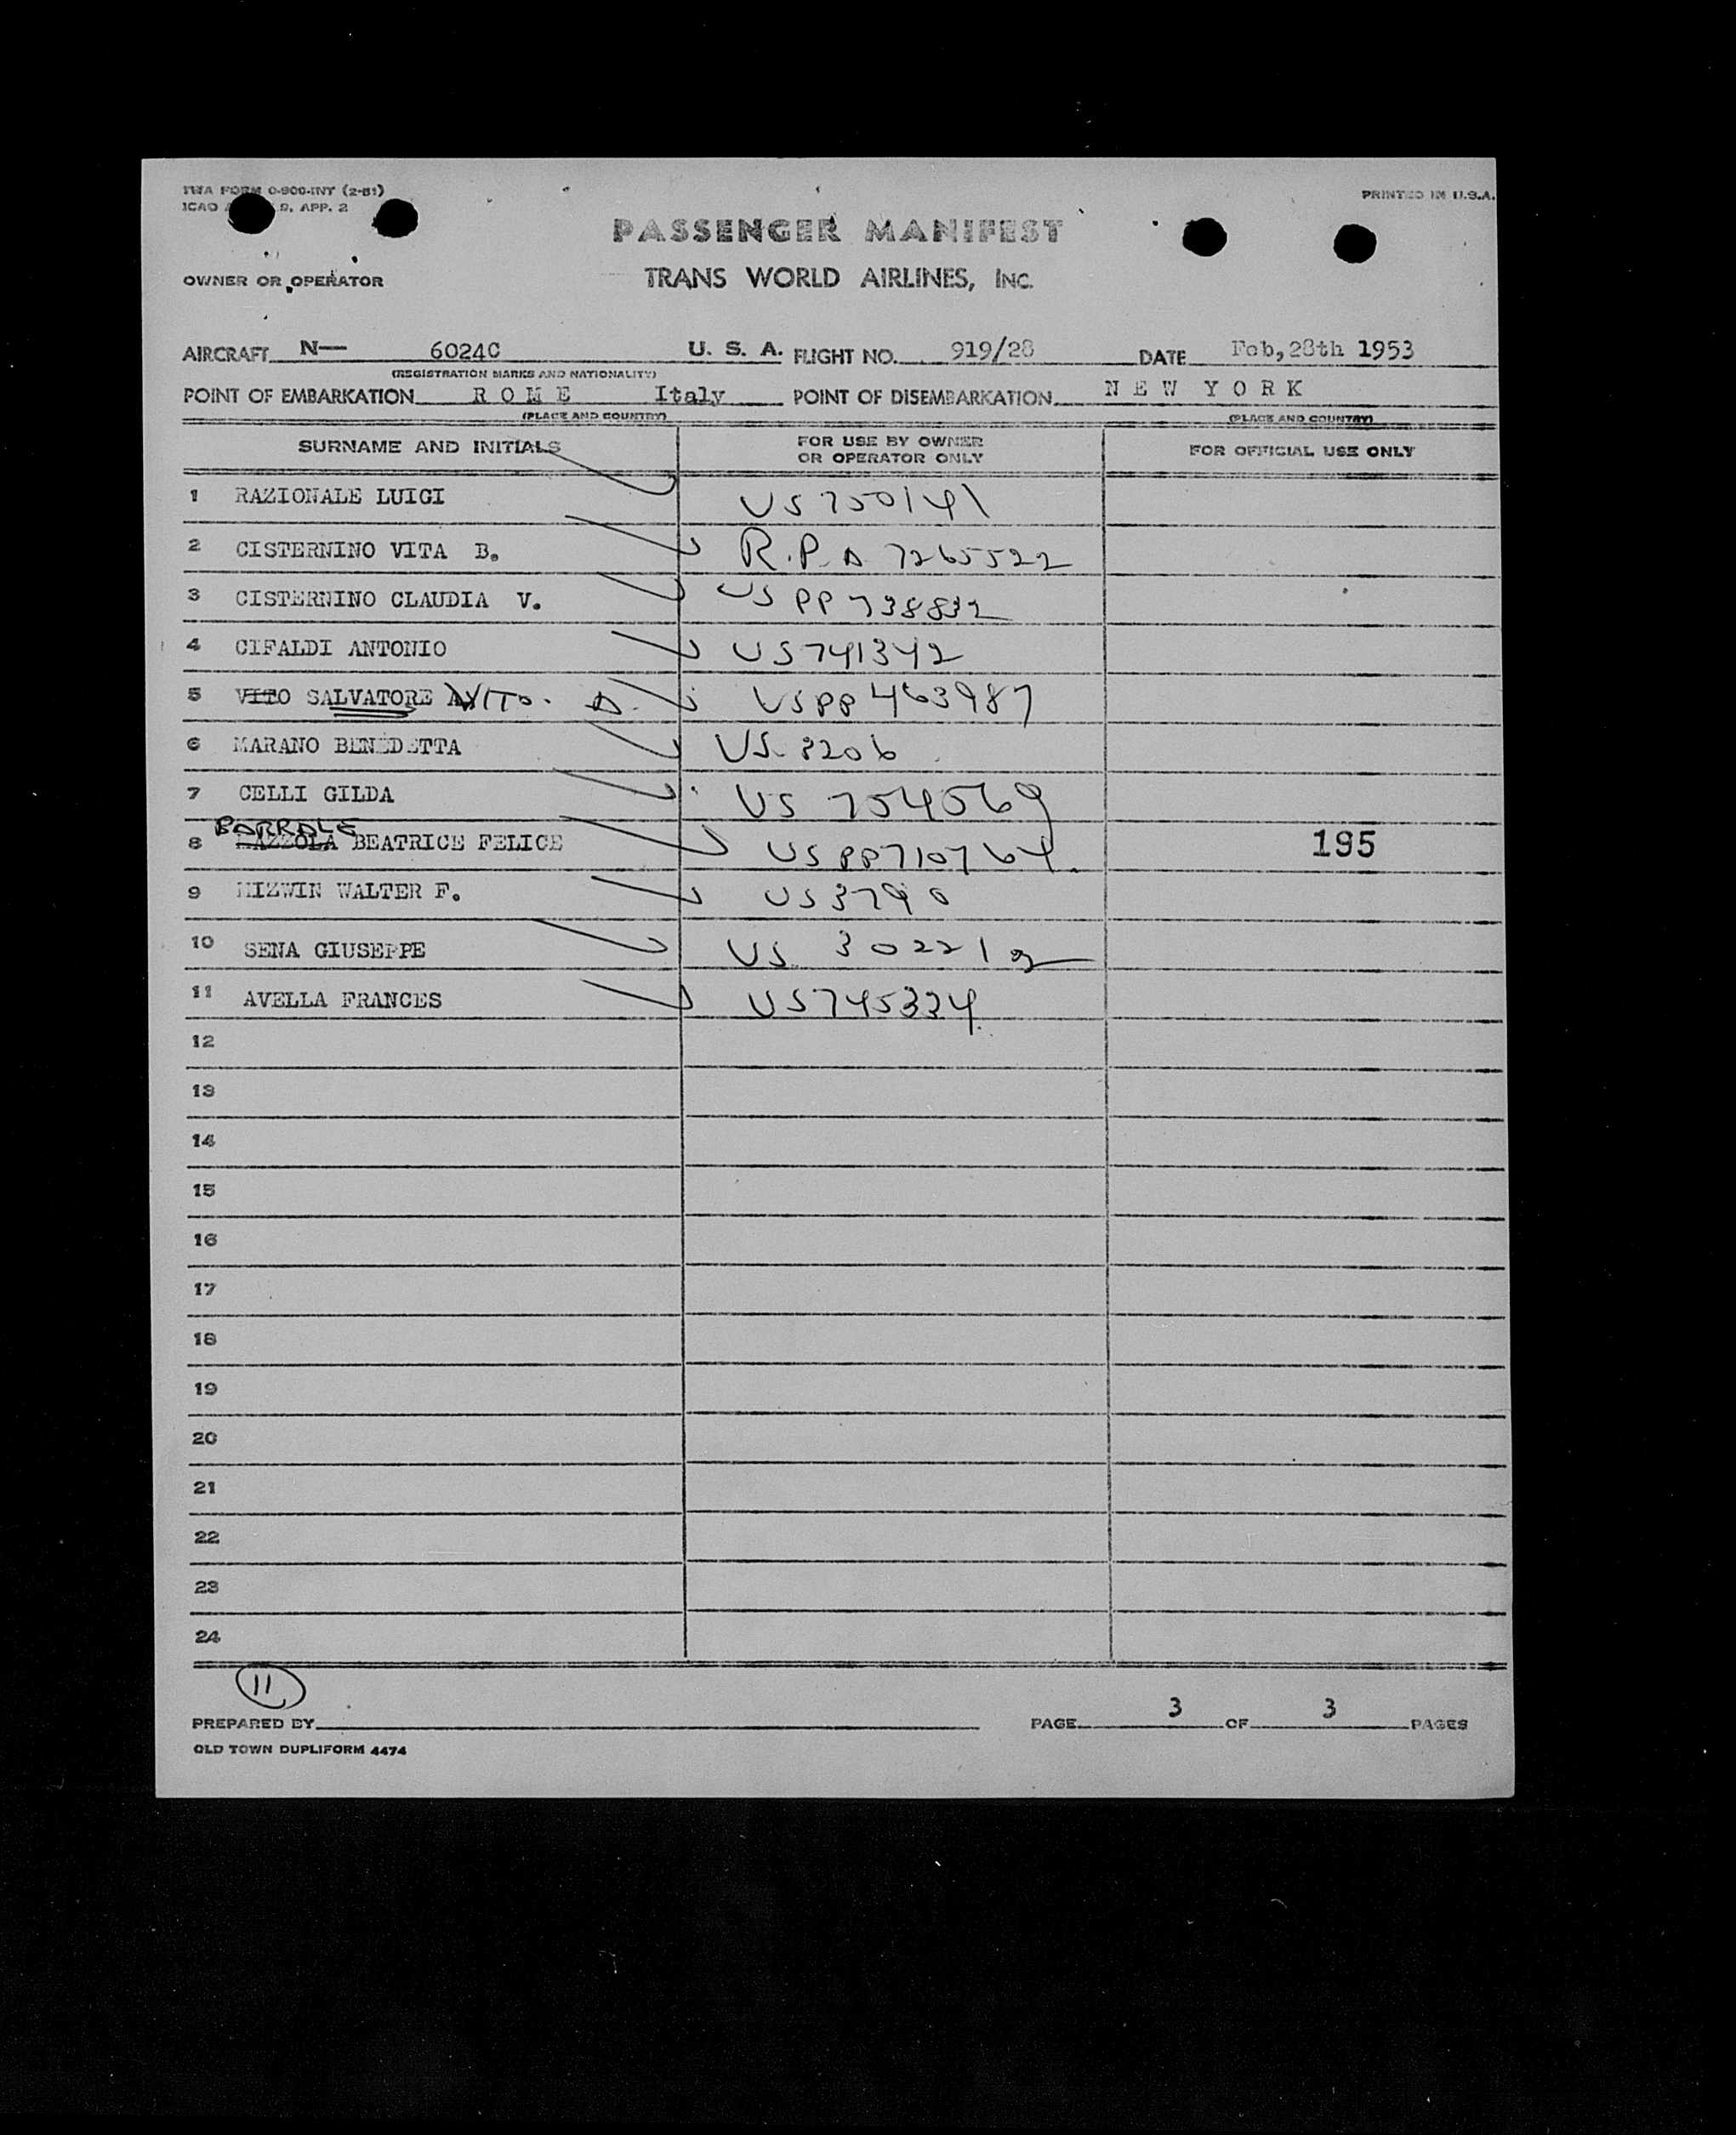 TWA FORM 0-900-INT (2-51)
PRINTED IN U.S.A.
ICAO 9, APP. 2
PASSENGER MANIFEST
OWNER OR OPERATOR
TRANS WORLD AIRLINES, INC.
AIRCRAFT N— 6024C U. S. A. FLIGHT NO. 919/28 DATE Feb, 28th 1953
(REGISTRATION MARKS AND NATIONALITY)
POINT OF EMBARKATION R O M E Italy POINT OF DISEMBARKATION N E W Y O R K
(PLACE AND COUNTRY) (PLACE AND COUNTRY)
SURNAME AND INITIALS FOR USE BY OWNER OR OPERATOR ONLY FOR OFFICIAL USE ONLY
1 RAZIONALE LUIGI US 750141
2 CISTERNINO VITA B. R.P.A 7265522
3 CISTERNINO CLAUDIA V. US PP 738832
4 CIFALDI ANTONIO US 741342
5 VITO SALVATORE VITO. A. US PP 463987
6 MARANO BENEDETTA US 3206
7 CELLI GILDA US 754569
BARRALE
8 MAZZOLA BEATRICE FELICE US PP 710764 195
9 MIZWIN WALTER F. US 3790
10 SENA GIUSEPPE US 302212
11 AVELLA FRANCES US 745334
12
13
14
15
16
17
18
19
20
21
22
23
24
11
PREPARED BY PAGE 3 OF 3 PAGES
OLD TOWN DUPLIFORM 4474